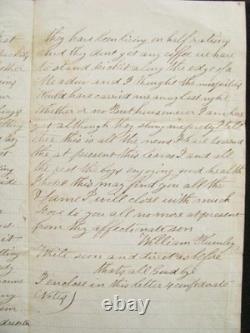 They have been living on half rations
and they dont get any coffee we have
to stand picket along the edge of a
Meadow and I thought the musquitoes
would have carried me away last night
whether or no But however I am here
yet although they stung me pretty
this is all the news I have to send
at present this leaves I and all
the rest the boys enjoying good health
I hope this may find you all the
Same I will close with much
love to you all no more at present
from thy affectionate son
William
Write soon and direct as before
thats all Good by
I enclose in this letter 4 confederate
(Notes)